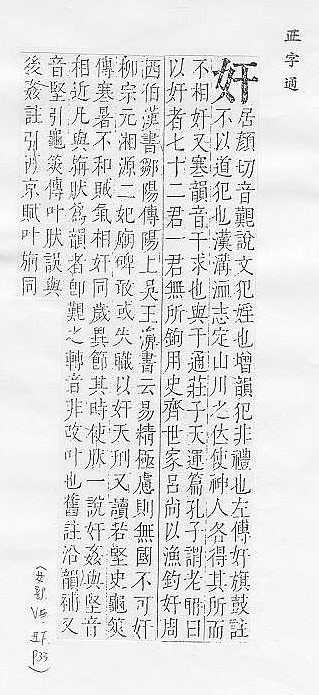 正字通
奸居顔切音艱說文犯婬也增韻犯非禮也左傳奸旗鼓註
不以道犯也漢溝洫志定山川之位使神人各得其所而
不相奸又寒韻音干求也與干通莊子天運篇孔子謂老聃曰
以奸者七十二君一君無所鉤用史齊世家呂尚以漁釣奸周
西伯漢書鄒陽傳陽上吳王濞書云易精極慮則無國不可奸
柳宗元湘源二妃廟碑敢或失職以奸天刑又讀若堅史龜筴
傳寒暑不和賊氣相奸同歲異節其時使肰一說奸姦與堅音
相近凡與旃肰爲韻者卽艱之轉音非攺叶也舊註沿韻補又
音堅引龜筴傳叶肰誤與
後姦註引西京賦叶旃同
(女部 P33)